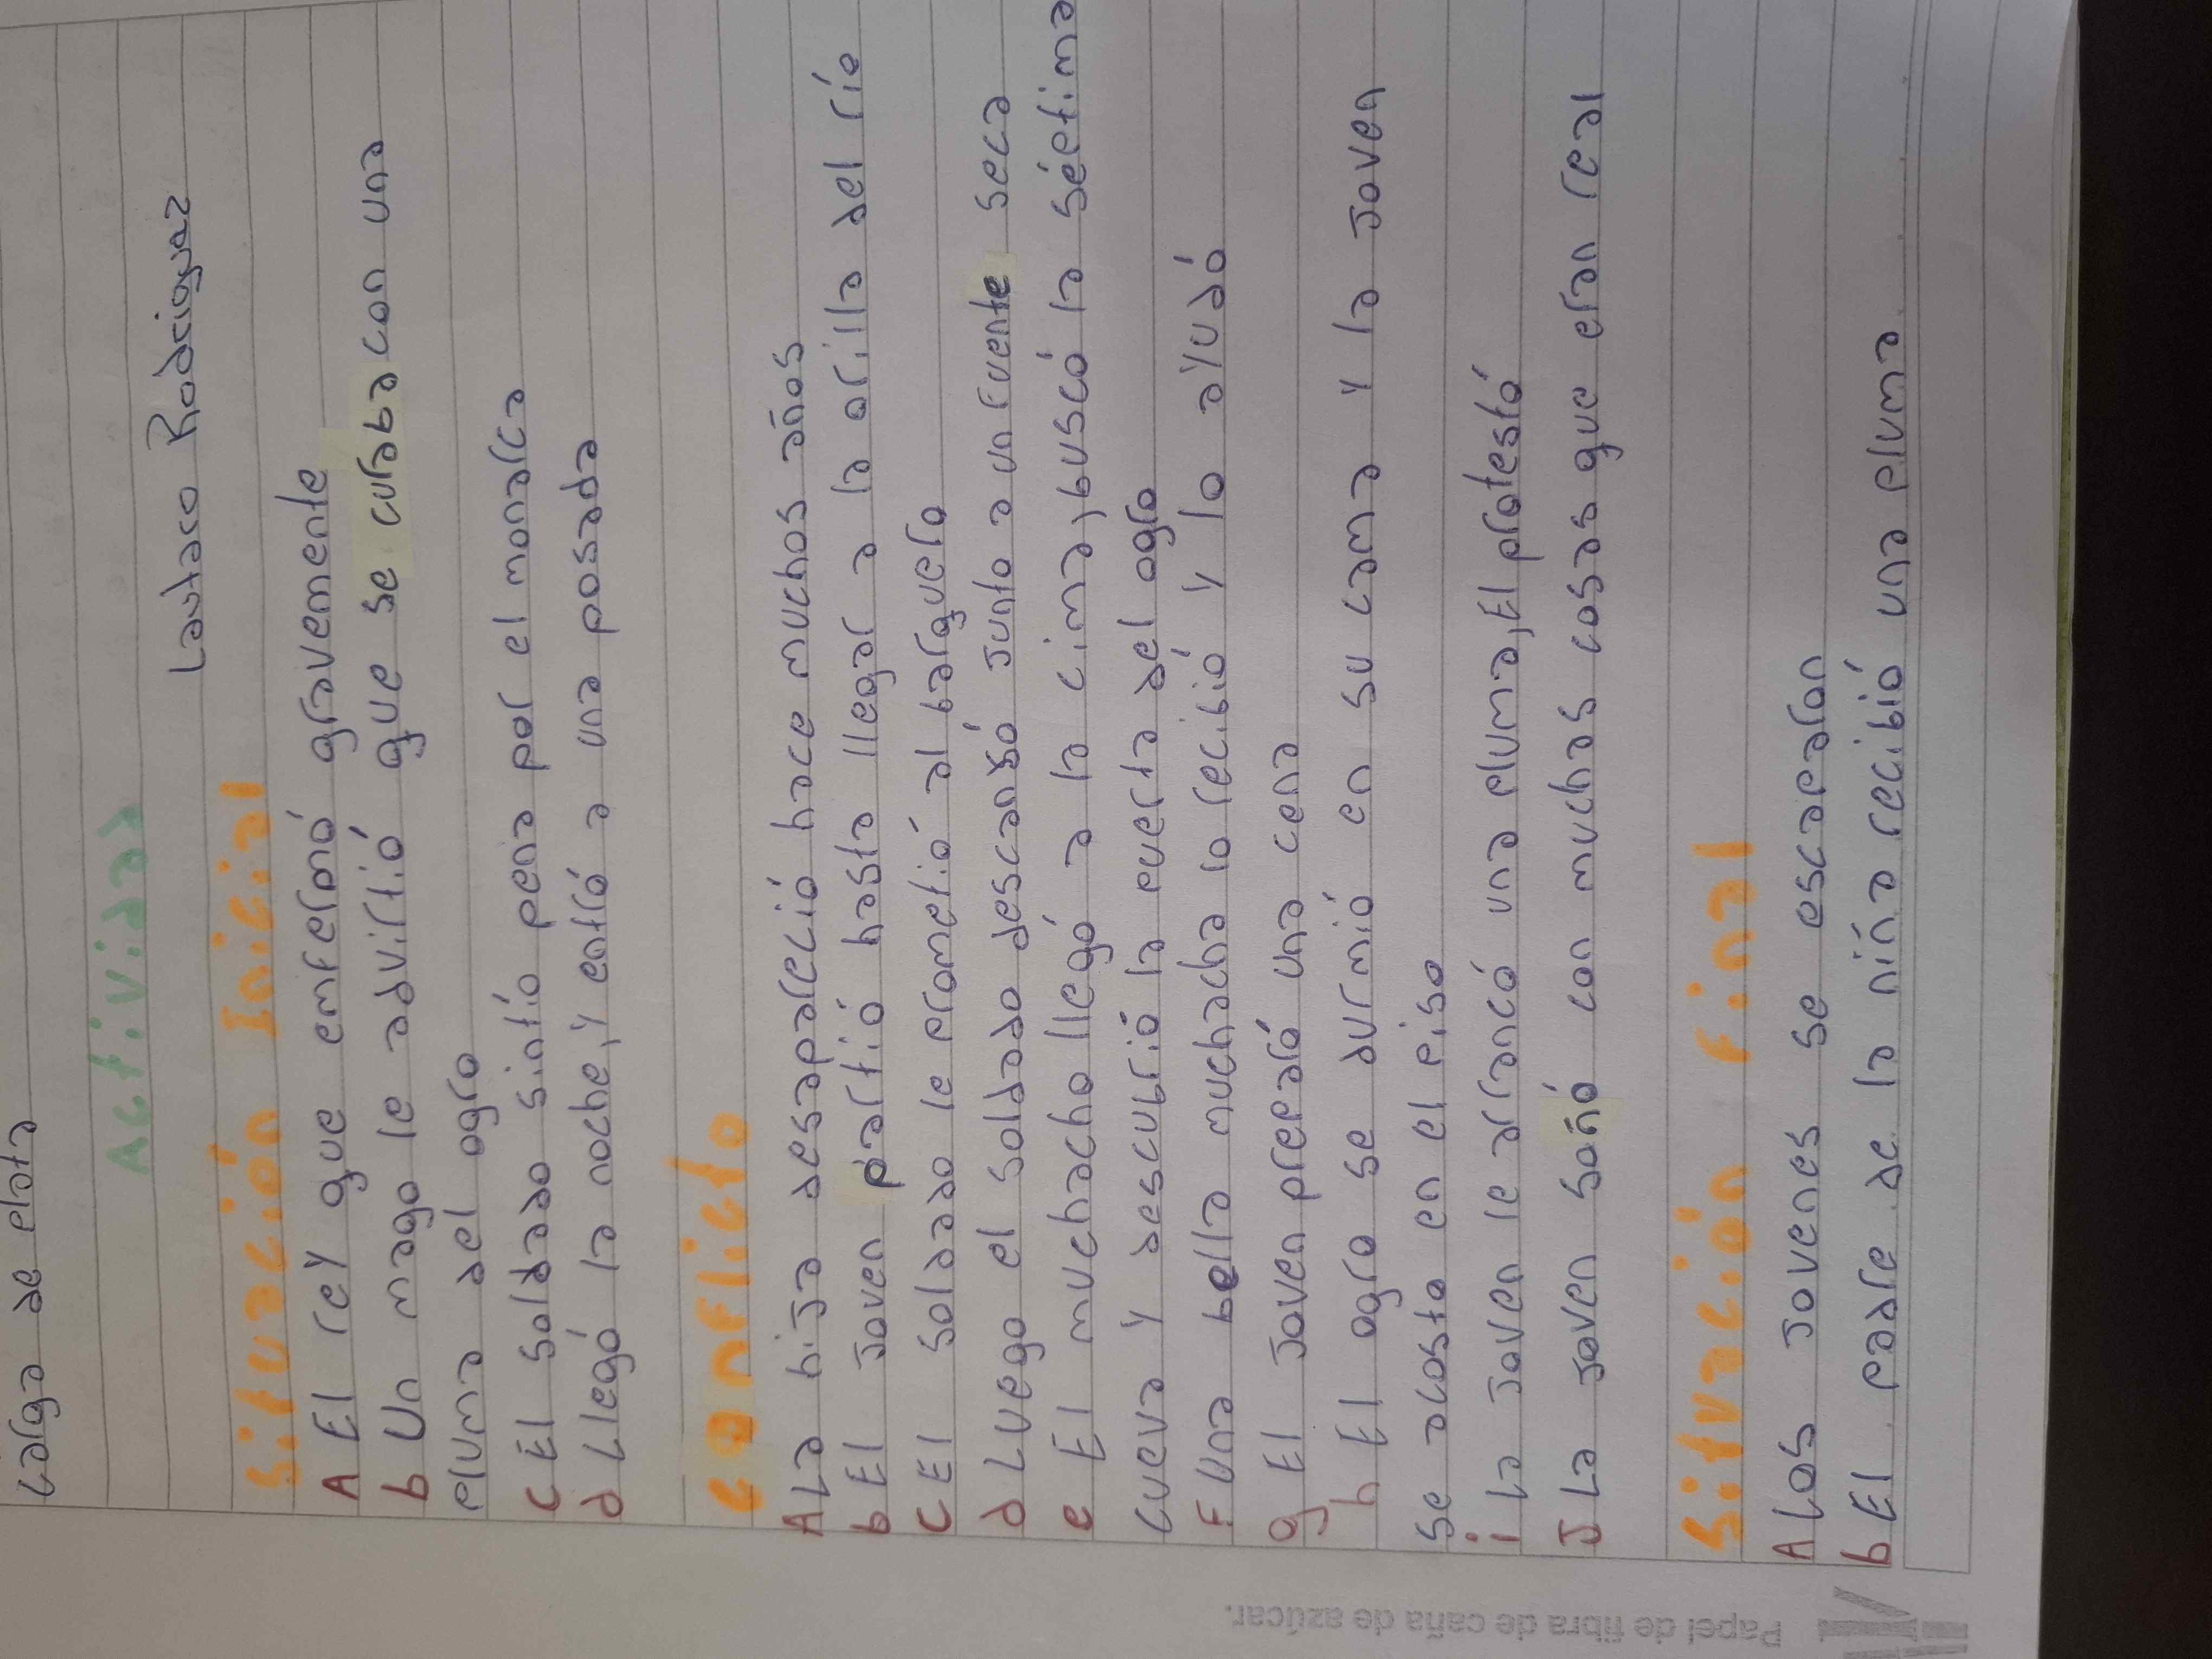 carga de plata
Actividad
Lautaro Rodriguez
Situación Inicial
A El rey que emfermó gravemente
b Un mago le advirtió que se curaba con una
pluma del ogro
C El soldado sintío pena por el monarca
d Llegó la noche, y entró a una posada
conflicto
A La hija desaparició hace muchos años
b El joven partió hasta llegar a la orilla del río
C El soldado le prometió al barquero
d Luego el soldado descansó junto a un fuente seca
e El muchacho llegó a la cima, buscó la séptima
cueva y descubrió la puerta del ogro
F Una bella muchacha lo recibió y lo ayudó
g El joven preparó una cena
h El ogro se durmió en su cama y la joven
se acosto en el piso
i La joven le arrancó una pluma, El protestó
J La joven soñó con muchas cosas que eran real
Situación Final
A Los jovenes se escaparon
b El padre de la niña recibió una pluma
Papel de fibra de caña de azúcar.